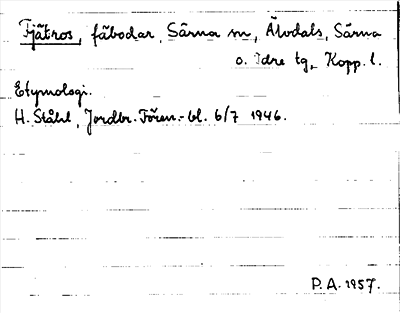 Fjätros, fäbodar, Särna sn, Älvdals, Särna
o. Idre tg, Kopp. l.
Etymologi.
H. Ståhl, Jordbr. Fören.-bl. 6/7 1946.
P.A. 1957.